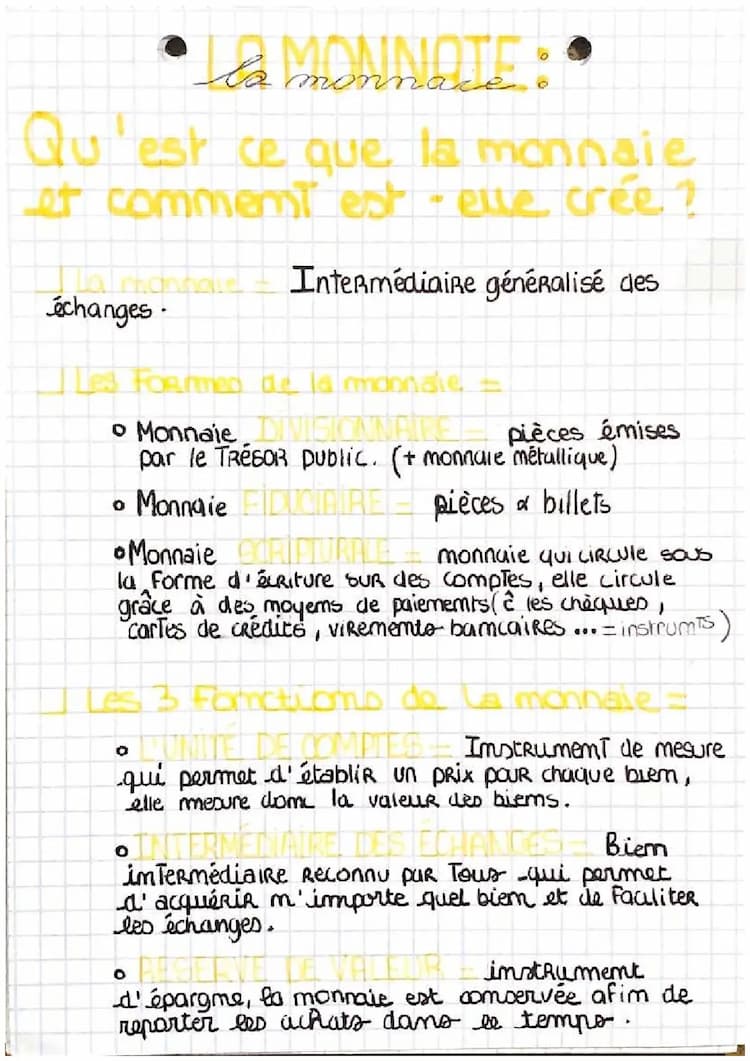 LA MONNAIE :
la monnaie
Qu'est ce que la monnaie
et comment est-elle crée ?
La monnaie = Intermédiaire généralisé des
échanges.
Les Formes de la monnaie =
Monnaie DIVISIONNAIRE = pièces émises
par le TRÉSOR PUBLIC. (+ monnaie métallique)
Monnaie FIDUCIAIRE = pièces & billets
Monnaie SCRIPTURALE = monnaie qui circule sous
la forme d'écriture sur des comptes, elle circule
grâce à des moyens de paiements (ĉ les chèques,
cartes de crédits, virements bancaires ... = instrumts)
Les 3 fonctions de la monnaie =
L'UNITÉ DE COMPTES = Instrument de mesure
qui permet d'établir un prix pour chaque bien,
elle mesure donc la valeur des biens.
INTERMÉDIAIRE DES ÉCHANGES = Bien
intermédiaire reconnu par Tous qui permet
d'acquérir n'importe quel bien et de faciliter
les échanges.
RESERVE DE VALEUR = instrument
d'épargne, la monnaie est conservée afin de
reporter les achats dans le temps.